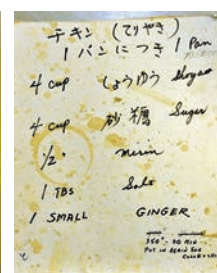 チキン (てりやき)
1パンにつき 1 Pan
4 cup しょうゆ Shoyu
4 cup 砂糖 Sugar
1/2 " mirin
1 TBS Salt
1 SMALL GINGER
350° - 30 MIN
PUT IN AGAIN FOR